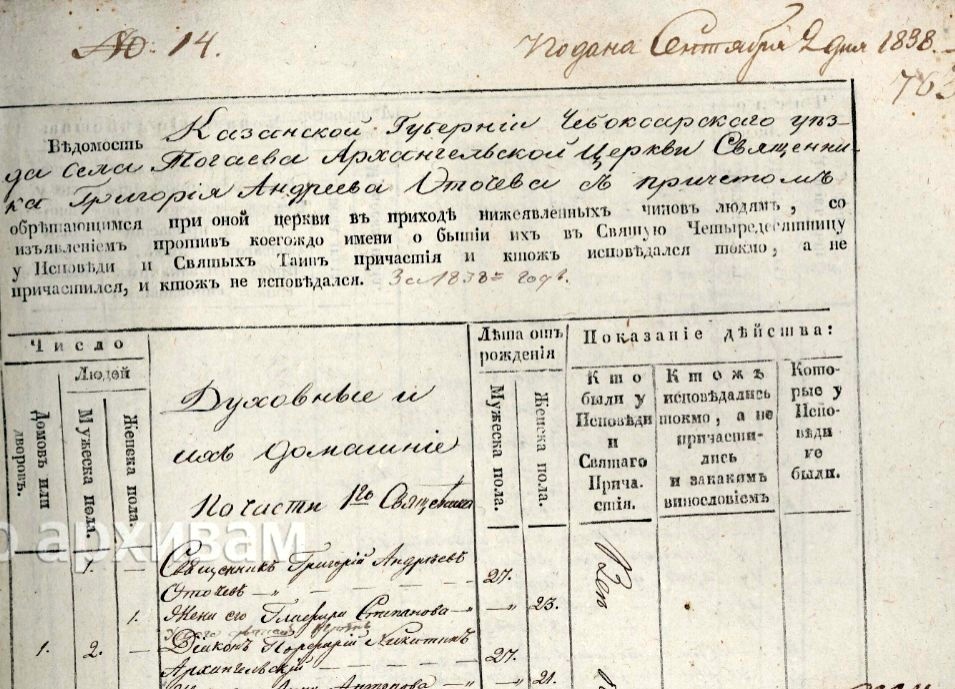 №: 14.
Подана Сентября 2 дня 1838.
763
Вѣдомость Казанской Губерніи Чебоксарскаго уѣз-
да села Тогаева Архангельской Церкви Священни-
ка Григорія Андреева Оточева съ причетомъ
обрѣтающимся при оной церкви въ приходѣ нижеявленныхъ чиновъ людямъ, со
изъявленіемъ противъ коегождо имени о бытіи ихъ въ Святую Четыредесятницу
у Исповѣди и Святыхъ Таинъ причастія и ктожъ исповѣдался токмо, а не
причастился, и ктожъ не исповѣдался. За 1838й годъ.
Число
Людей
Домовъ или дворовъ.
Мужеска пола.
Женска пола.
Духовные и
ихъ домашніе
По части 1го Священника
Лѣта отъ
рожденія
Мужеска пола.
Женска пола.
Показаніе дѣйства:
Кто
были у
Исповѣди
и
Святаго
Прича-
стія.
Ктожъ
исповѣдались
токмо, а не
причасти-
лись
и закакимъ
винословіемъ
Кото-
рые у
Испо-
вѣди
не
были.
о архивам
1. — Священникъ Григорій Андреевъ
Оточевъ — 27.
1. Жена его Глафира Степанова — 23.
1. 2. — Діаконъ Порфирій Никитинъ
Архангельскій — 27.
Антонова — 21.